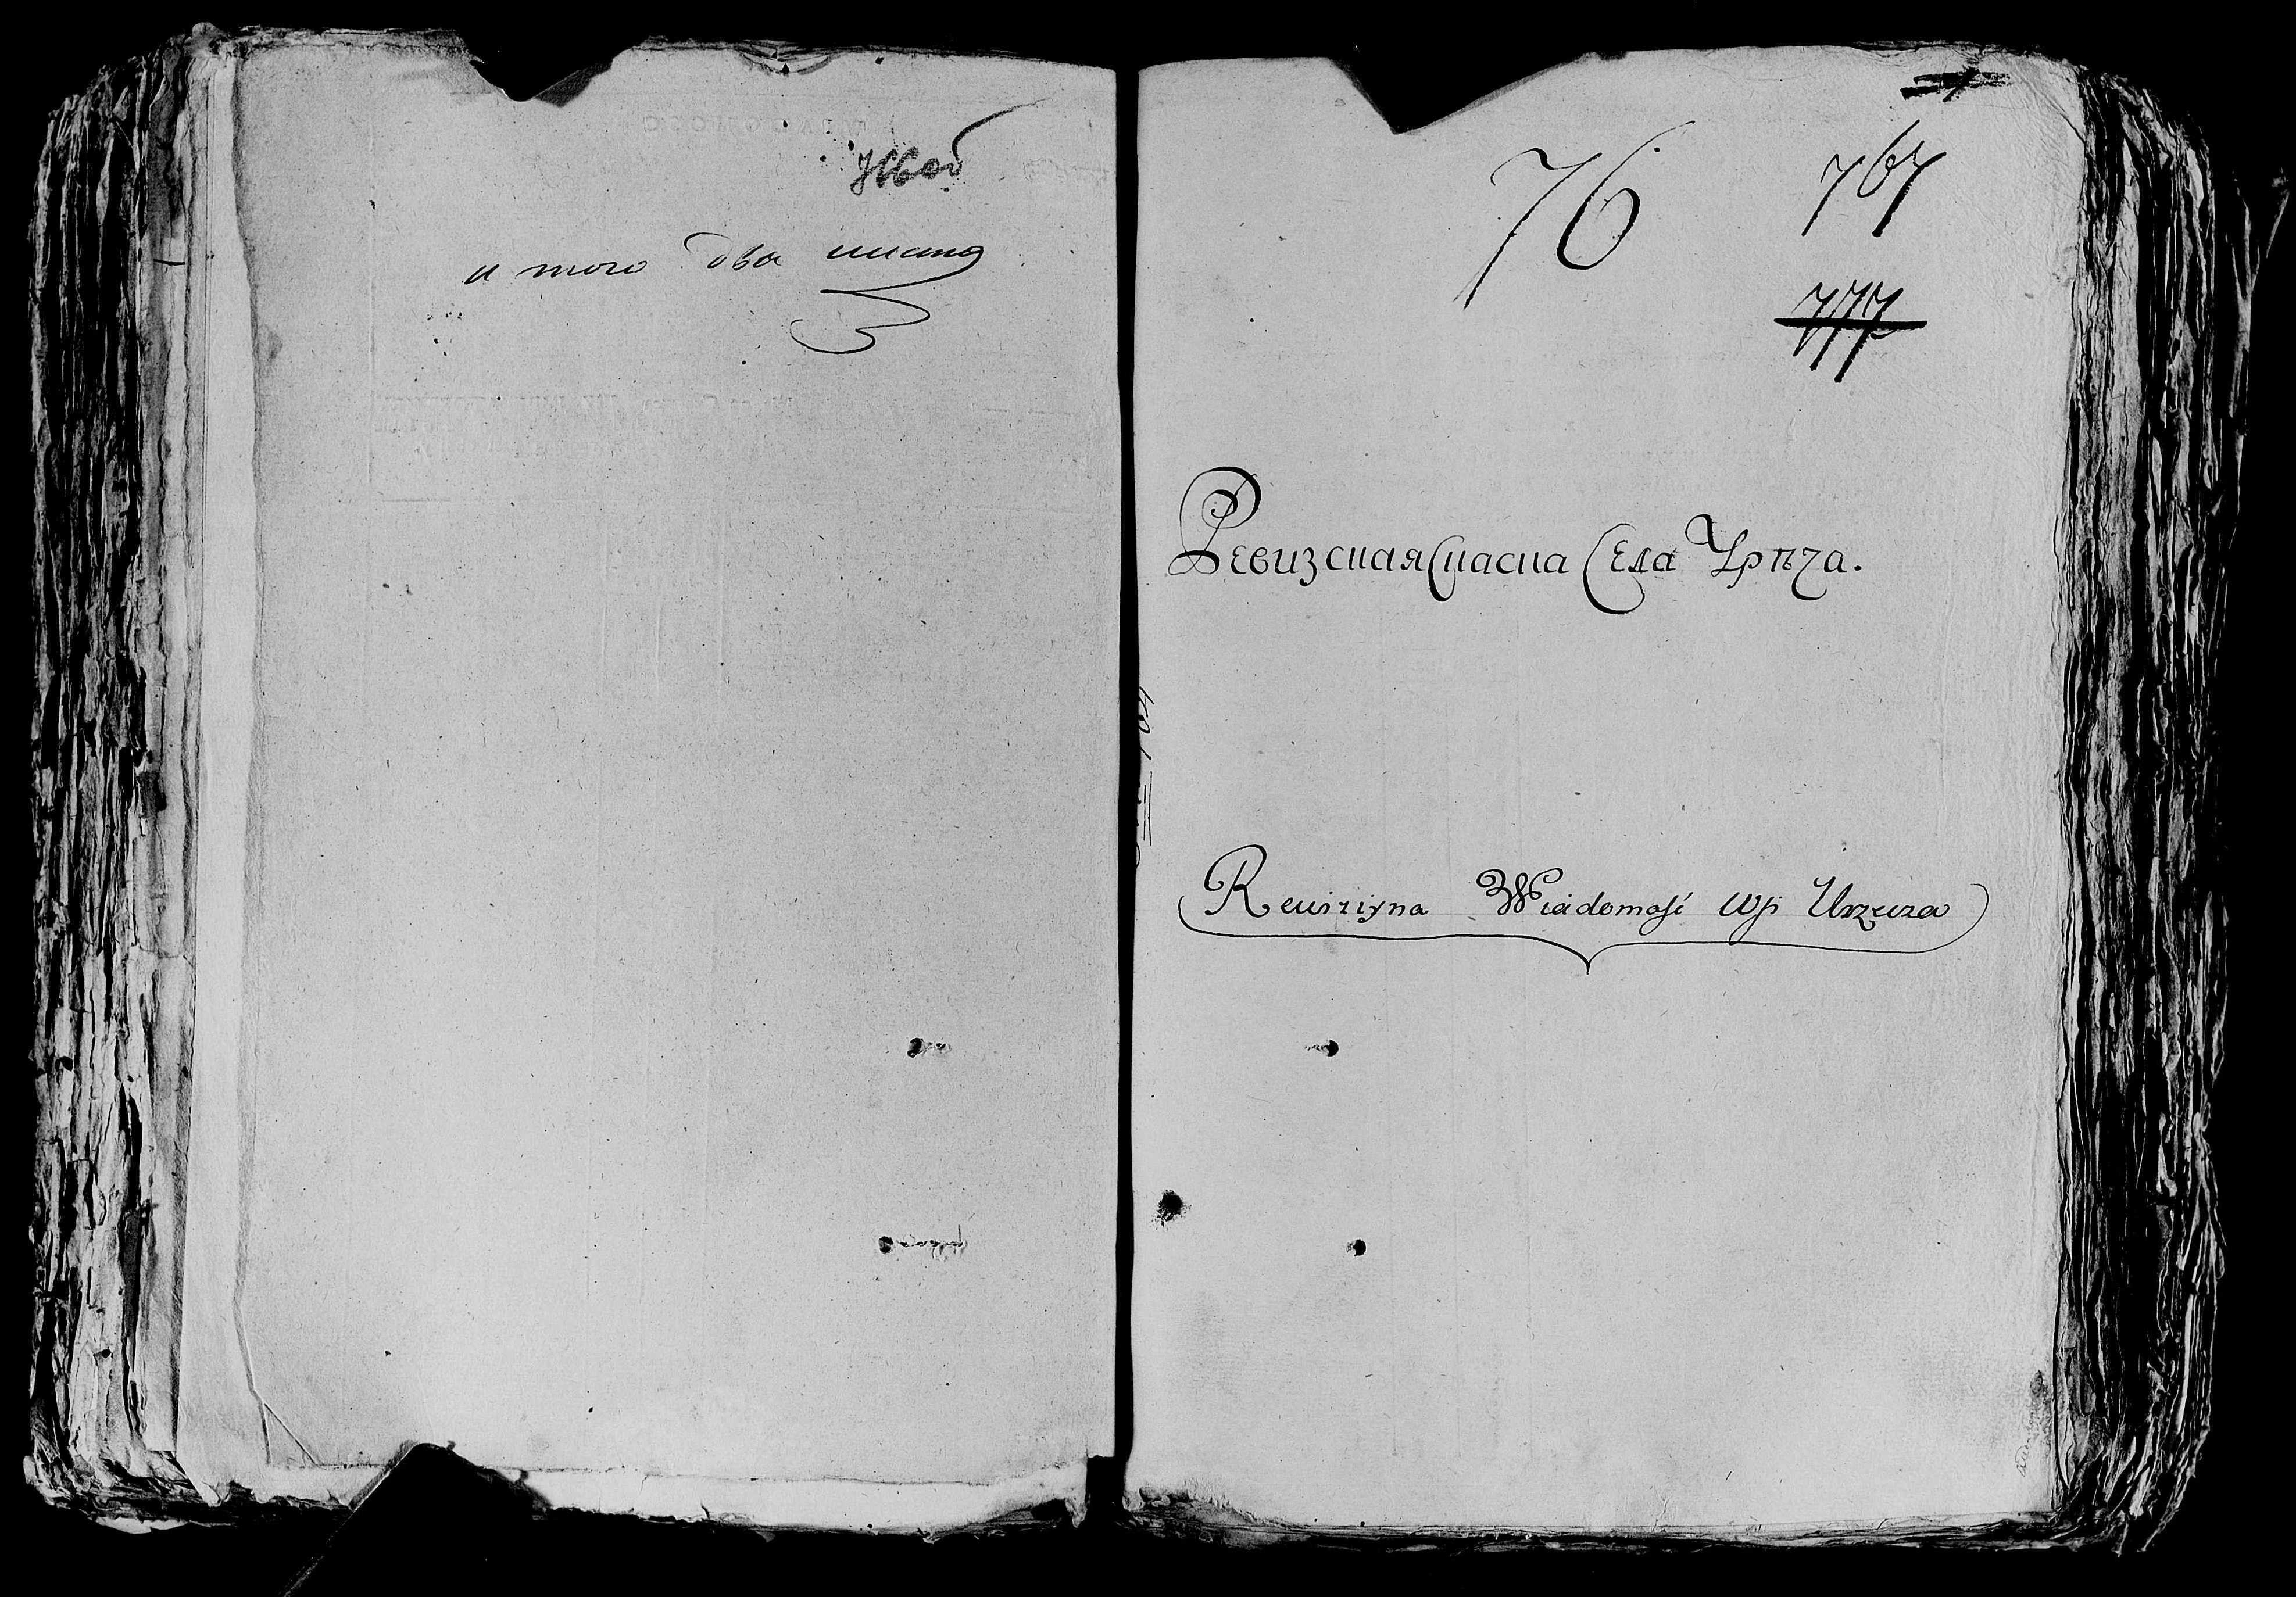 и того два листа
76
767
777
Ревизская Сказка Села Урѣча.
Rewiziyna Wiadomość wsi Urzecza